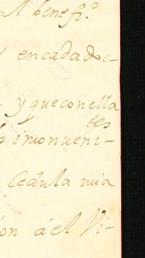 Al benefi.º
encadadoc-
y que conella
tes
imonuent-
Cedula mia
ón á el Vi-